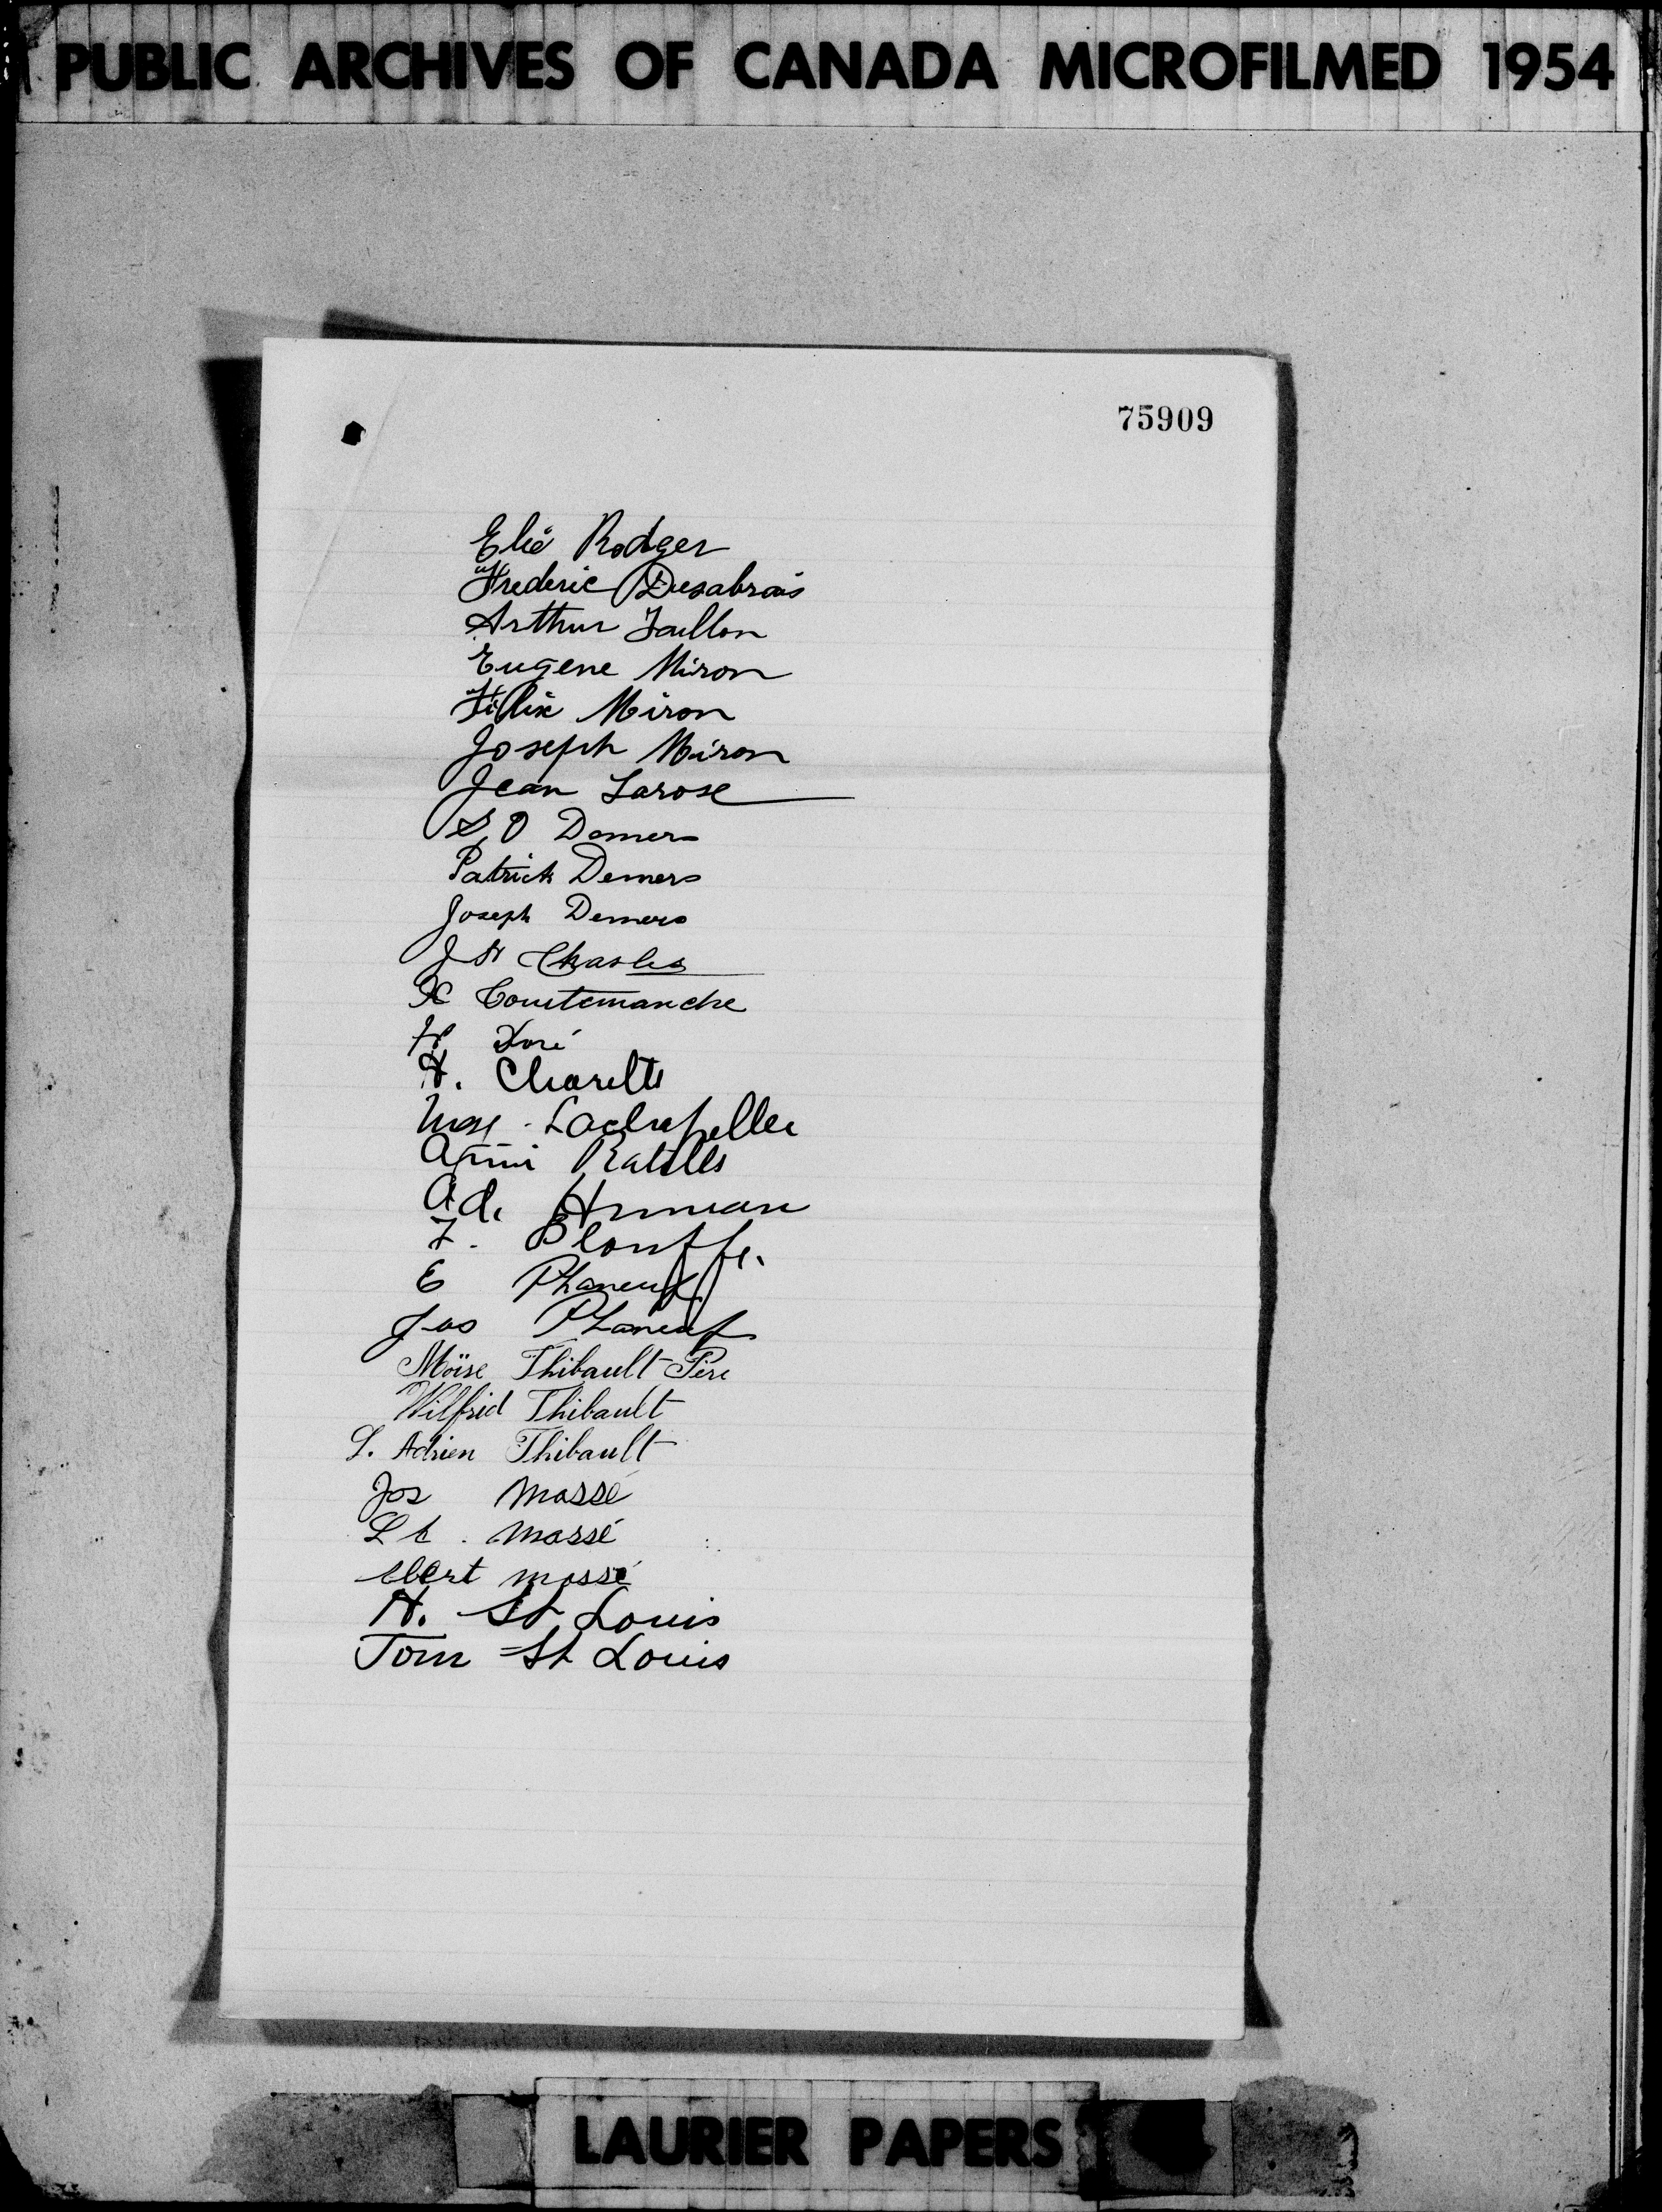 PUBLIC ARCHIVES OF CANADA MICROFILMED 1954
75909
Elie Rodger
Frederic Desabrais
Arthur Taillon
Eugene Miron
Félix Miron
Joseph Miron
Jean Larose
S, O Demers
Patrick Demers
Joseph Demers
J St Charles
X Courtemanche
Doré
H. Charette
Lachapelle
Ratelle
Ad.
F. Plouffe.
E Phaneuf
Jos Phaneuf
Moïse Thibault Père
Wilfrid Thibault
L. Adrien Thibault
Jos Massé
Massé
Ebert massé
H. St Louis
Tom St Louis
LAURIER PAPERS